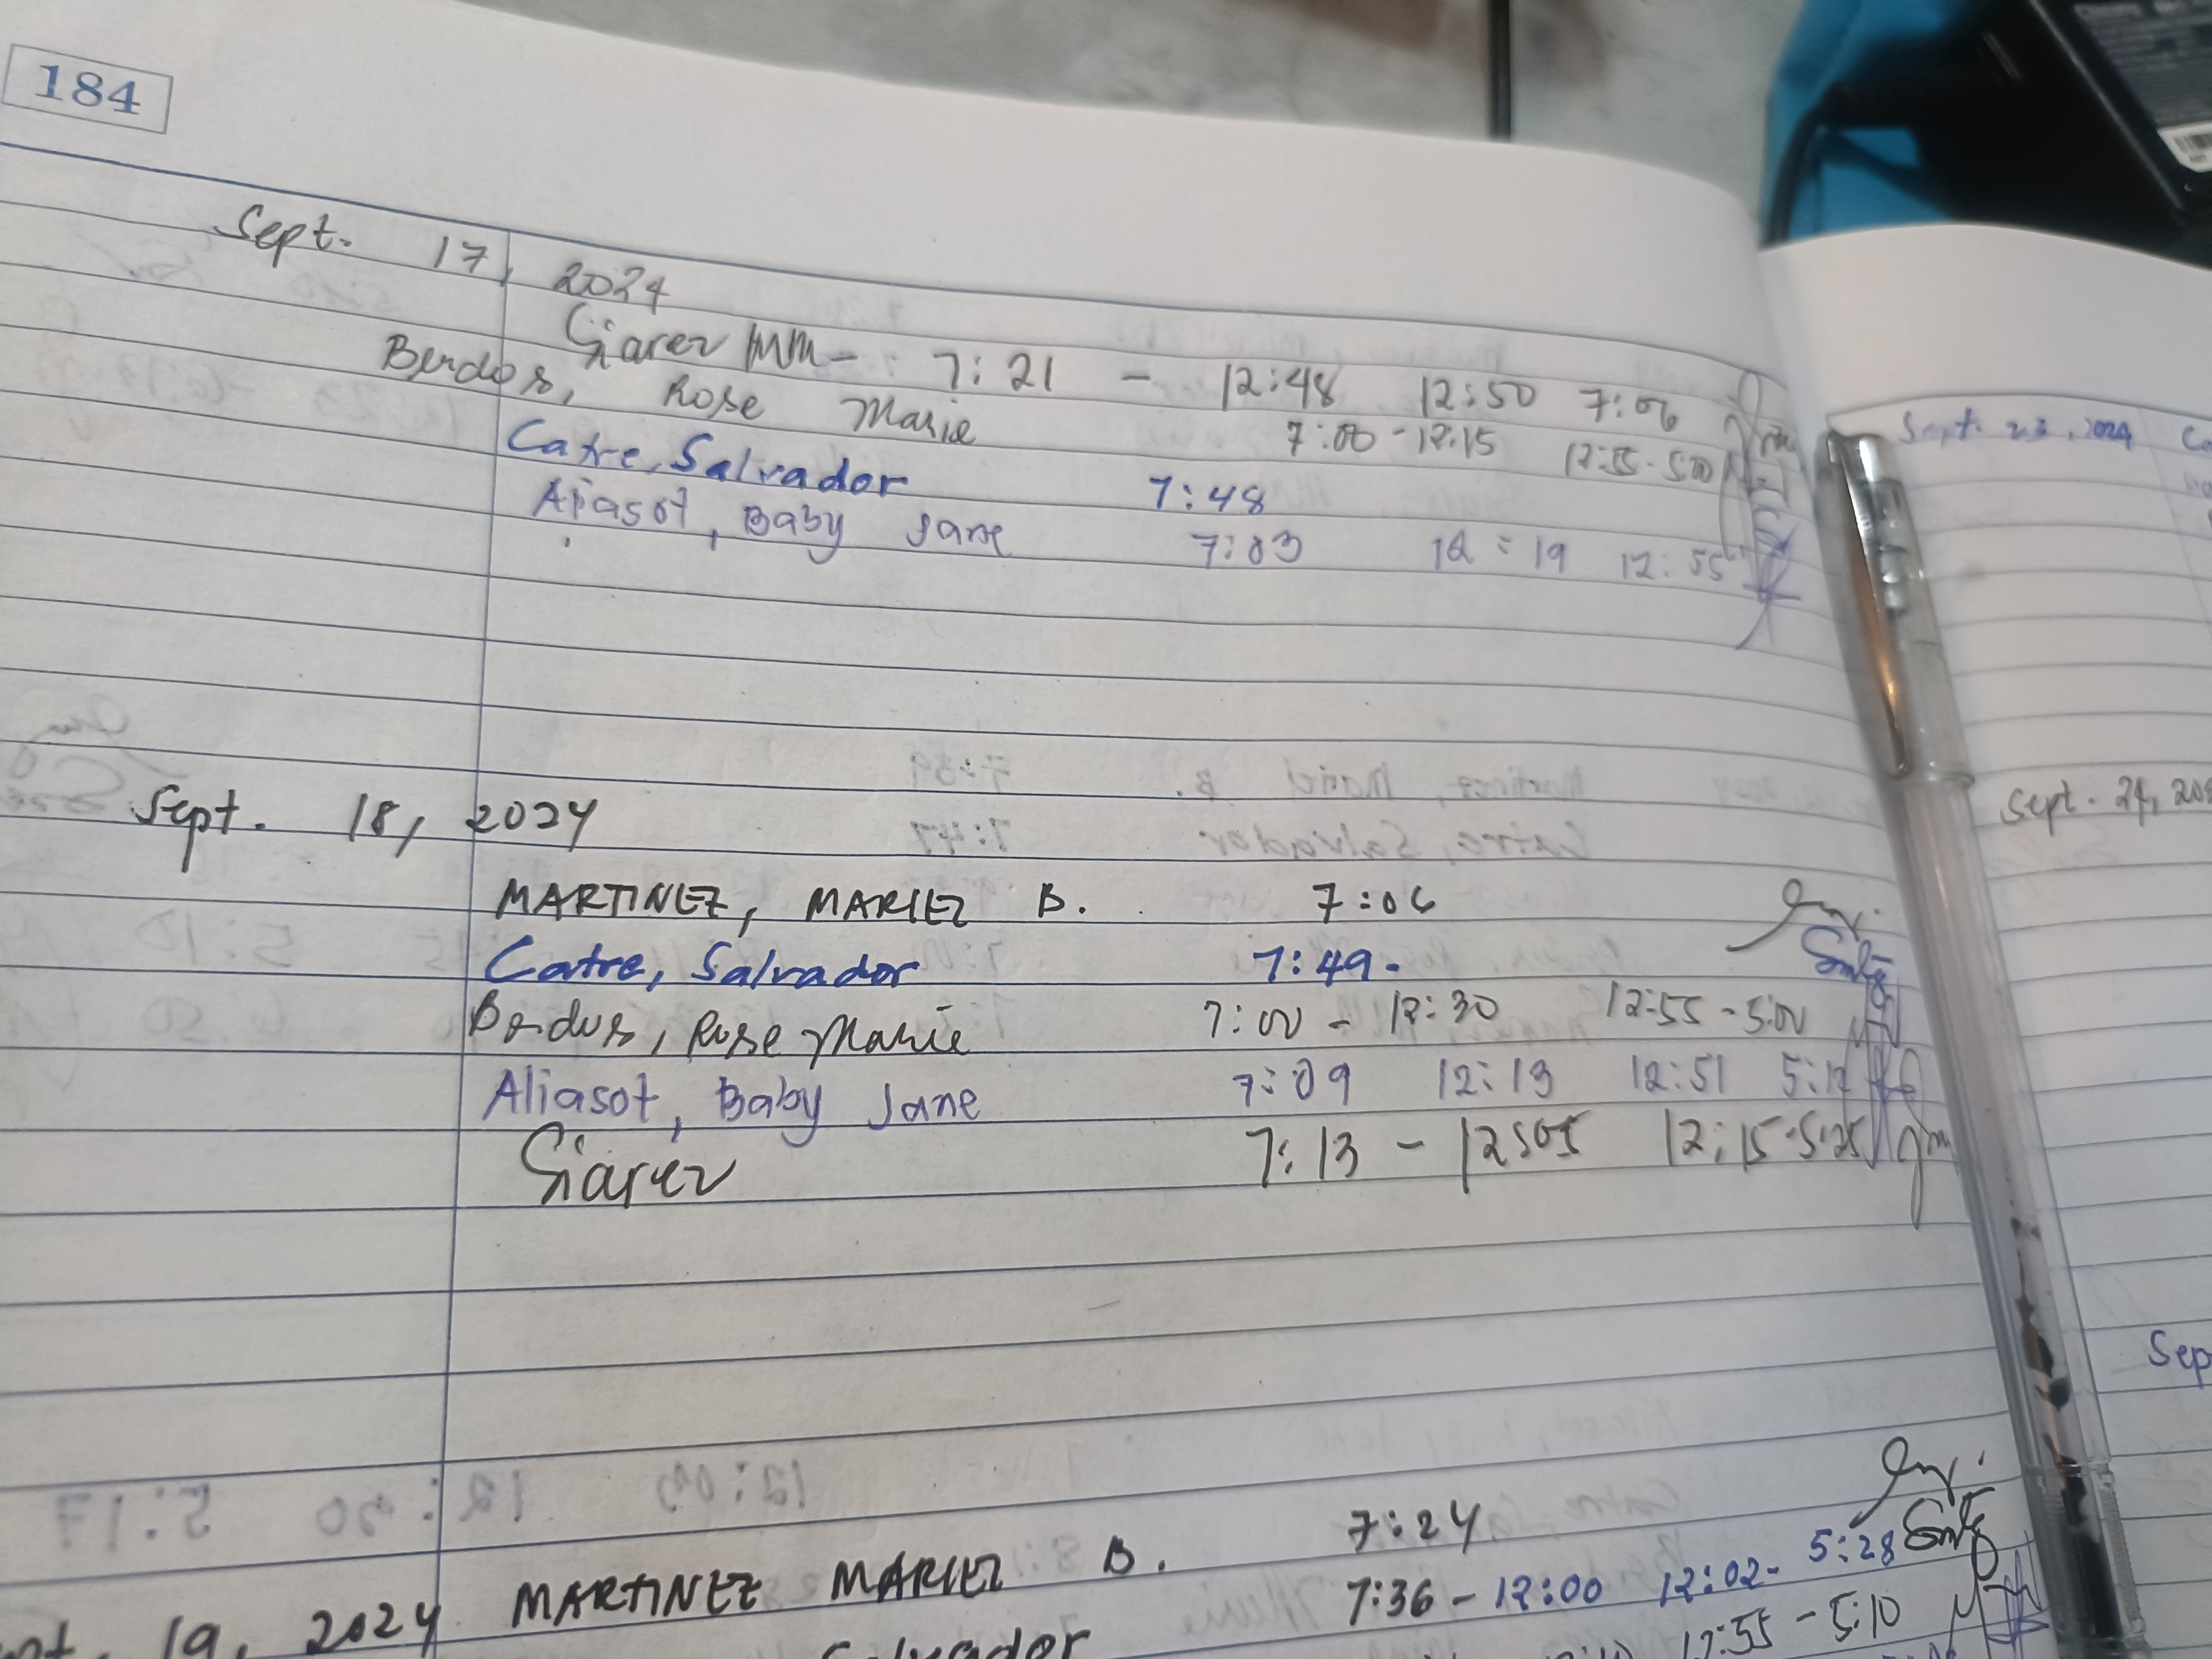 184
Sept. 17, 2024
Siarez MM - 7:21 - 12:48 12:50 7:06
Berdos, Rose Marie 7:00 - 12:15 12:55 - 5:00
Catre, Salvador 7:48
Aliasot, Baby Jane 7:03 12:19 12:55
Sept. 18, 2024
MARTINEZ, MARIEL B. 7:06
Catre, Salvador 7:49.
Berdos, Rose Marie 7:00 - 12:30 12:55 - 5:00
Aliasot, Baby Jane 7:09 12:13 12:51 5:12
Siarez 7:13 - 12:05 12:15 - 5:25
19, 2024 MARTINEZ MARIEL B. 7:24
Salvador 7:36 - 12:00 12:02 - 5:28
12:55 - 5:10
Sept. 23, 2024
Sept. 24, 202
Sep